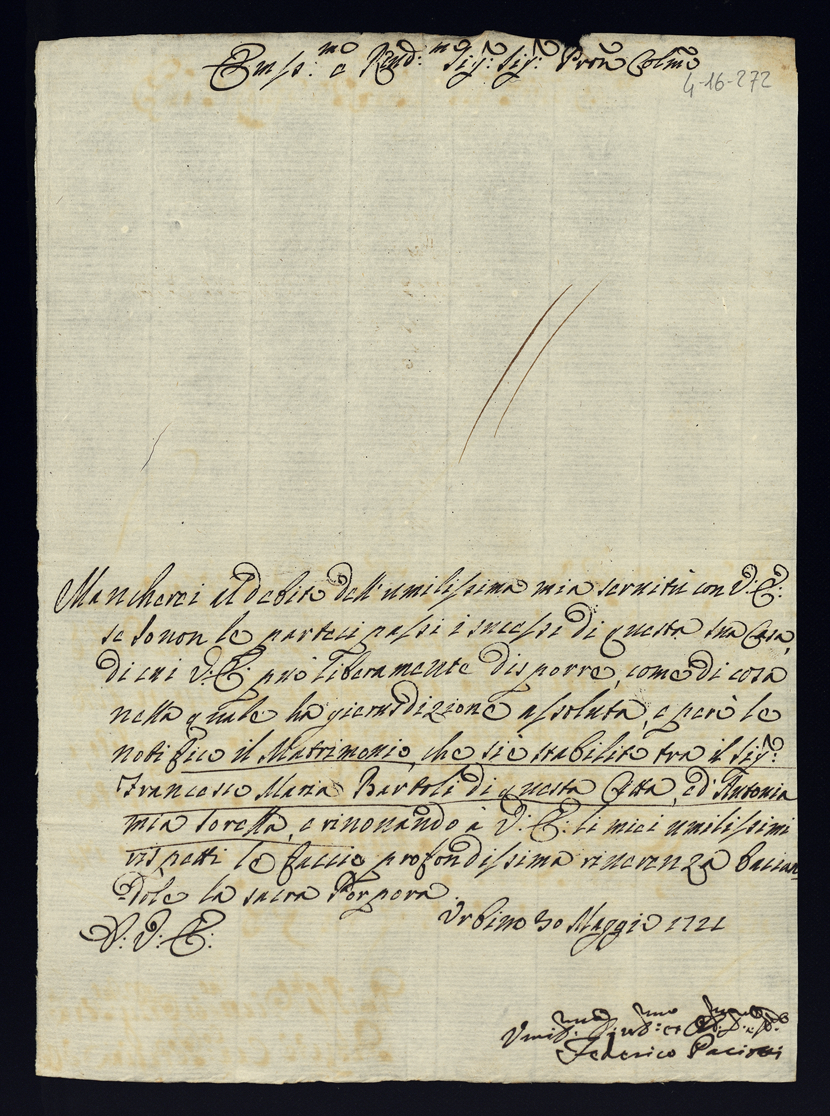 Em̅ss:mo e Rend:mo Sig:r Sig:r Pron̅ Colmo
4-16-272
Mancherei al debito dell'umilissima mia servitù con V: E:
se Io non le partecipassi i sucessi di questa sua Casa,
di cui V: E: può liberamente disporre, come di cosa
nella quale ha giurisdizione assoluta, e però le
notifico il Matrimonio, che si è stabilito tra il Sig:r
Francesco Maria Bartoli di questa Città, ed Antonia
mia sorella, e rinonando à V: E: li miei umilissimi
rispetti le faccio profondissima riverenza bacian=
dole la sacra Porpora.
Urbino 30 Maggio 1721
D: V: E:
Federico Paciotti